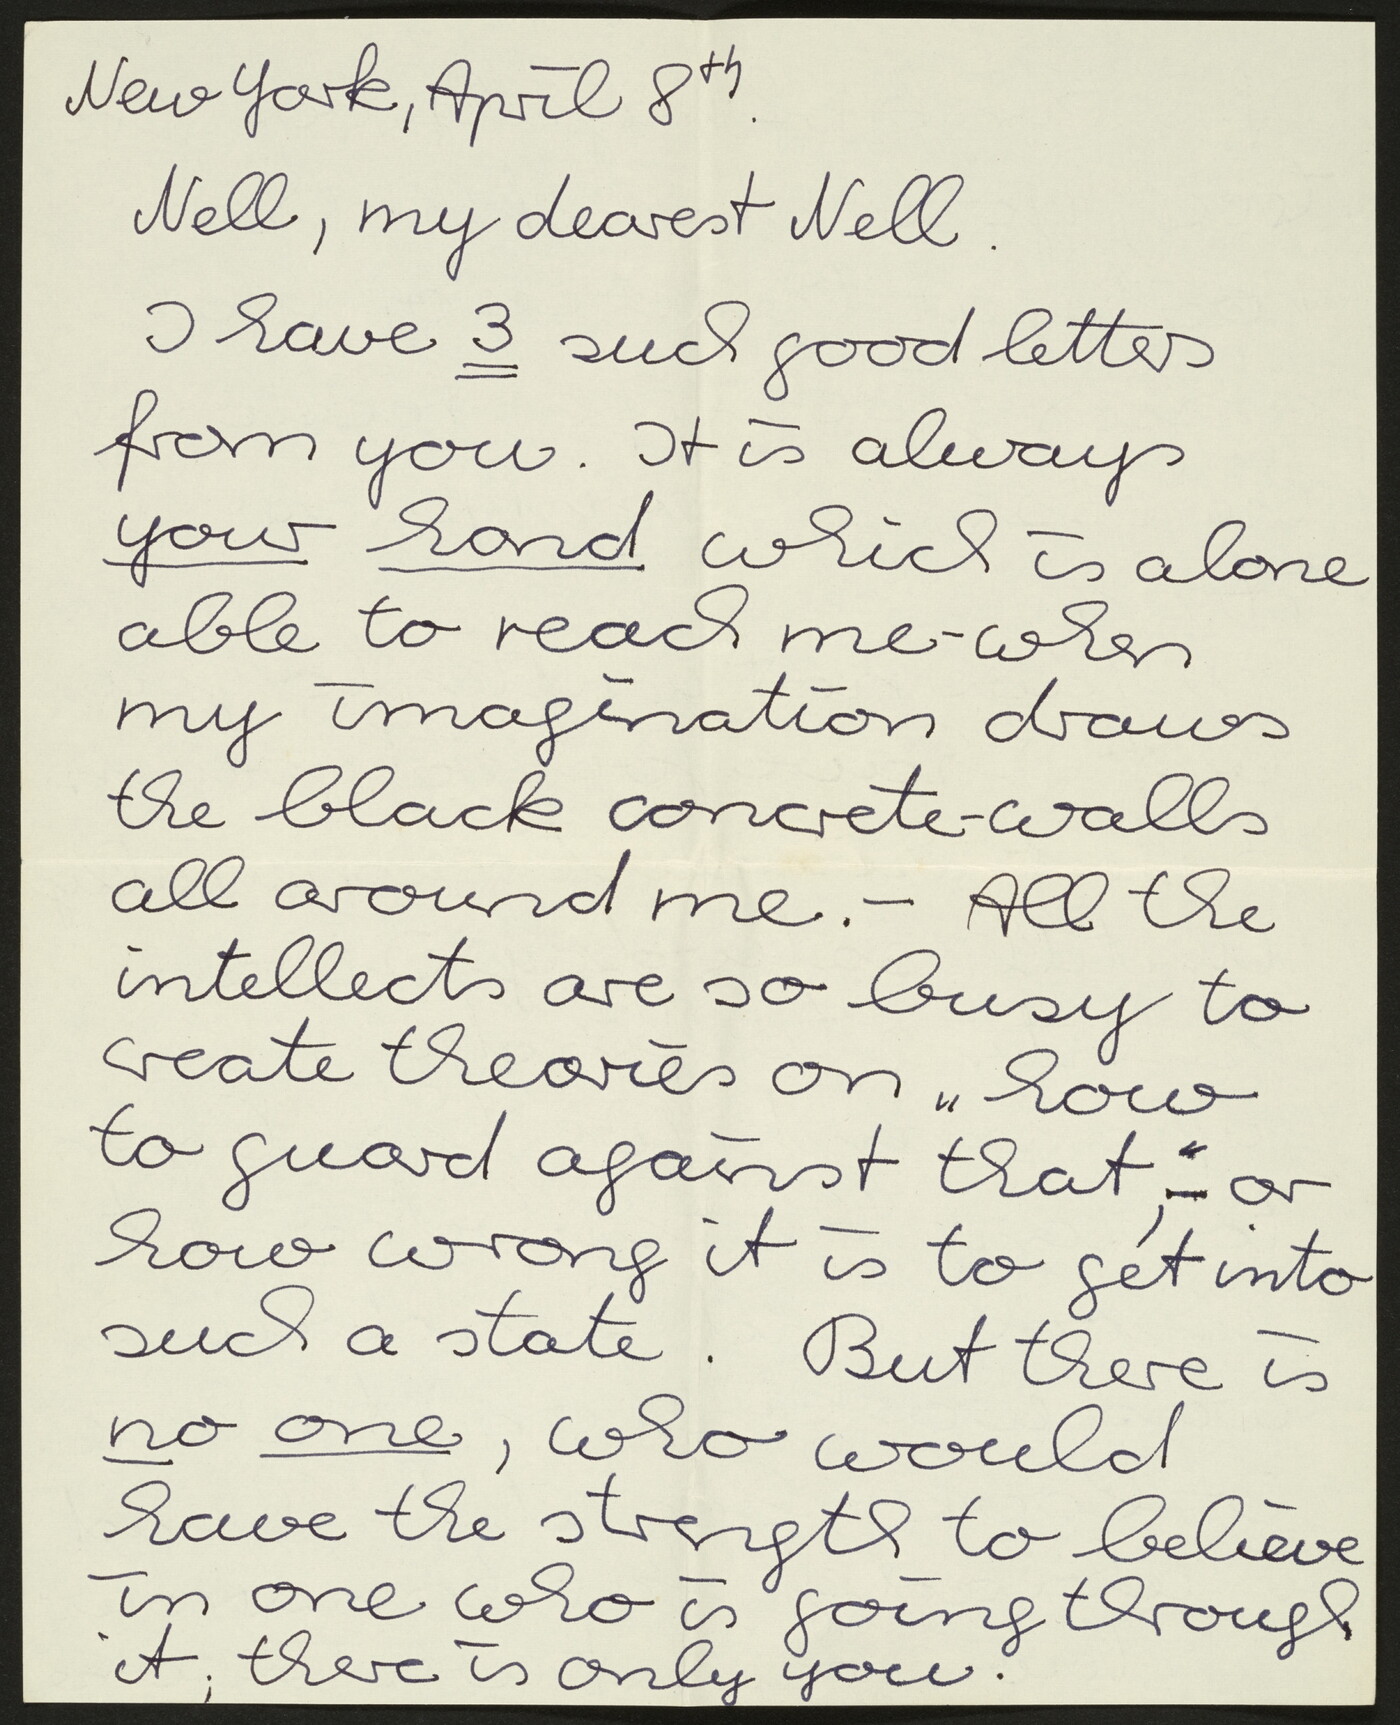 New York, April 8th.
Nell, my dearest Nell.
I have 3 such good letters
from you. It is always
your hand which is alone
able to reach me-when
my imagination draws
the black concrete-walls
all around me.- All the
intellects are so busy to
create theories on „how
to guard against that,“- or
how wrong it is to get into
such a state. But there is
no one, who would
have the strength to believe
in one who is going through
it; there is only you.